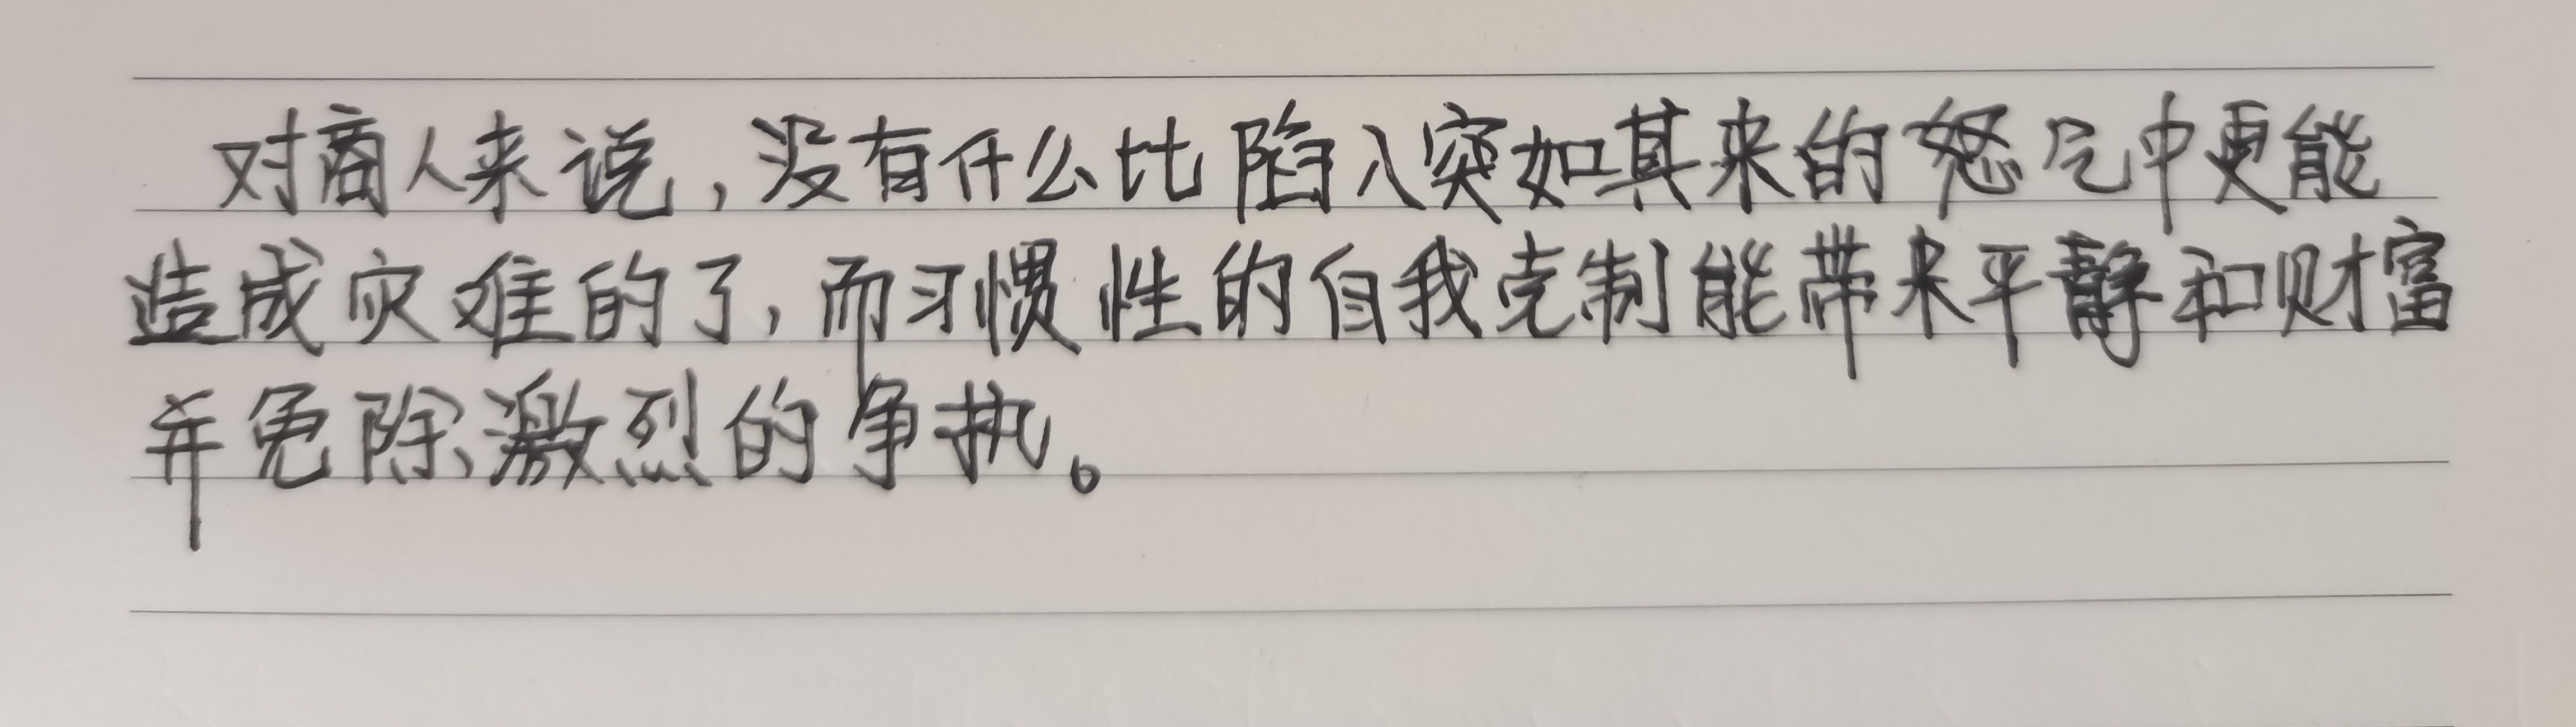 对商人来说,没有什么比陷入突如其来的怒气中更能
造成灾难的了,而习惯性的自我克制能带来平静和财富
并免除激烈的争执。